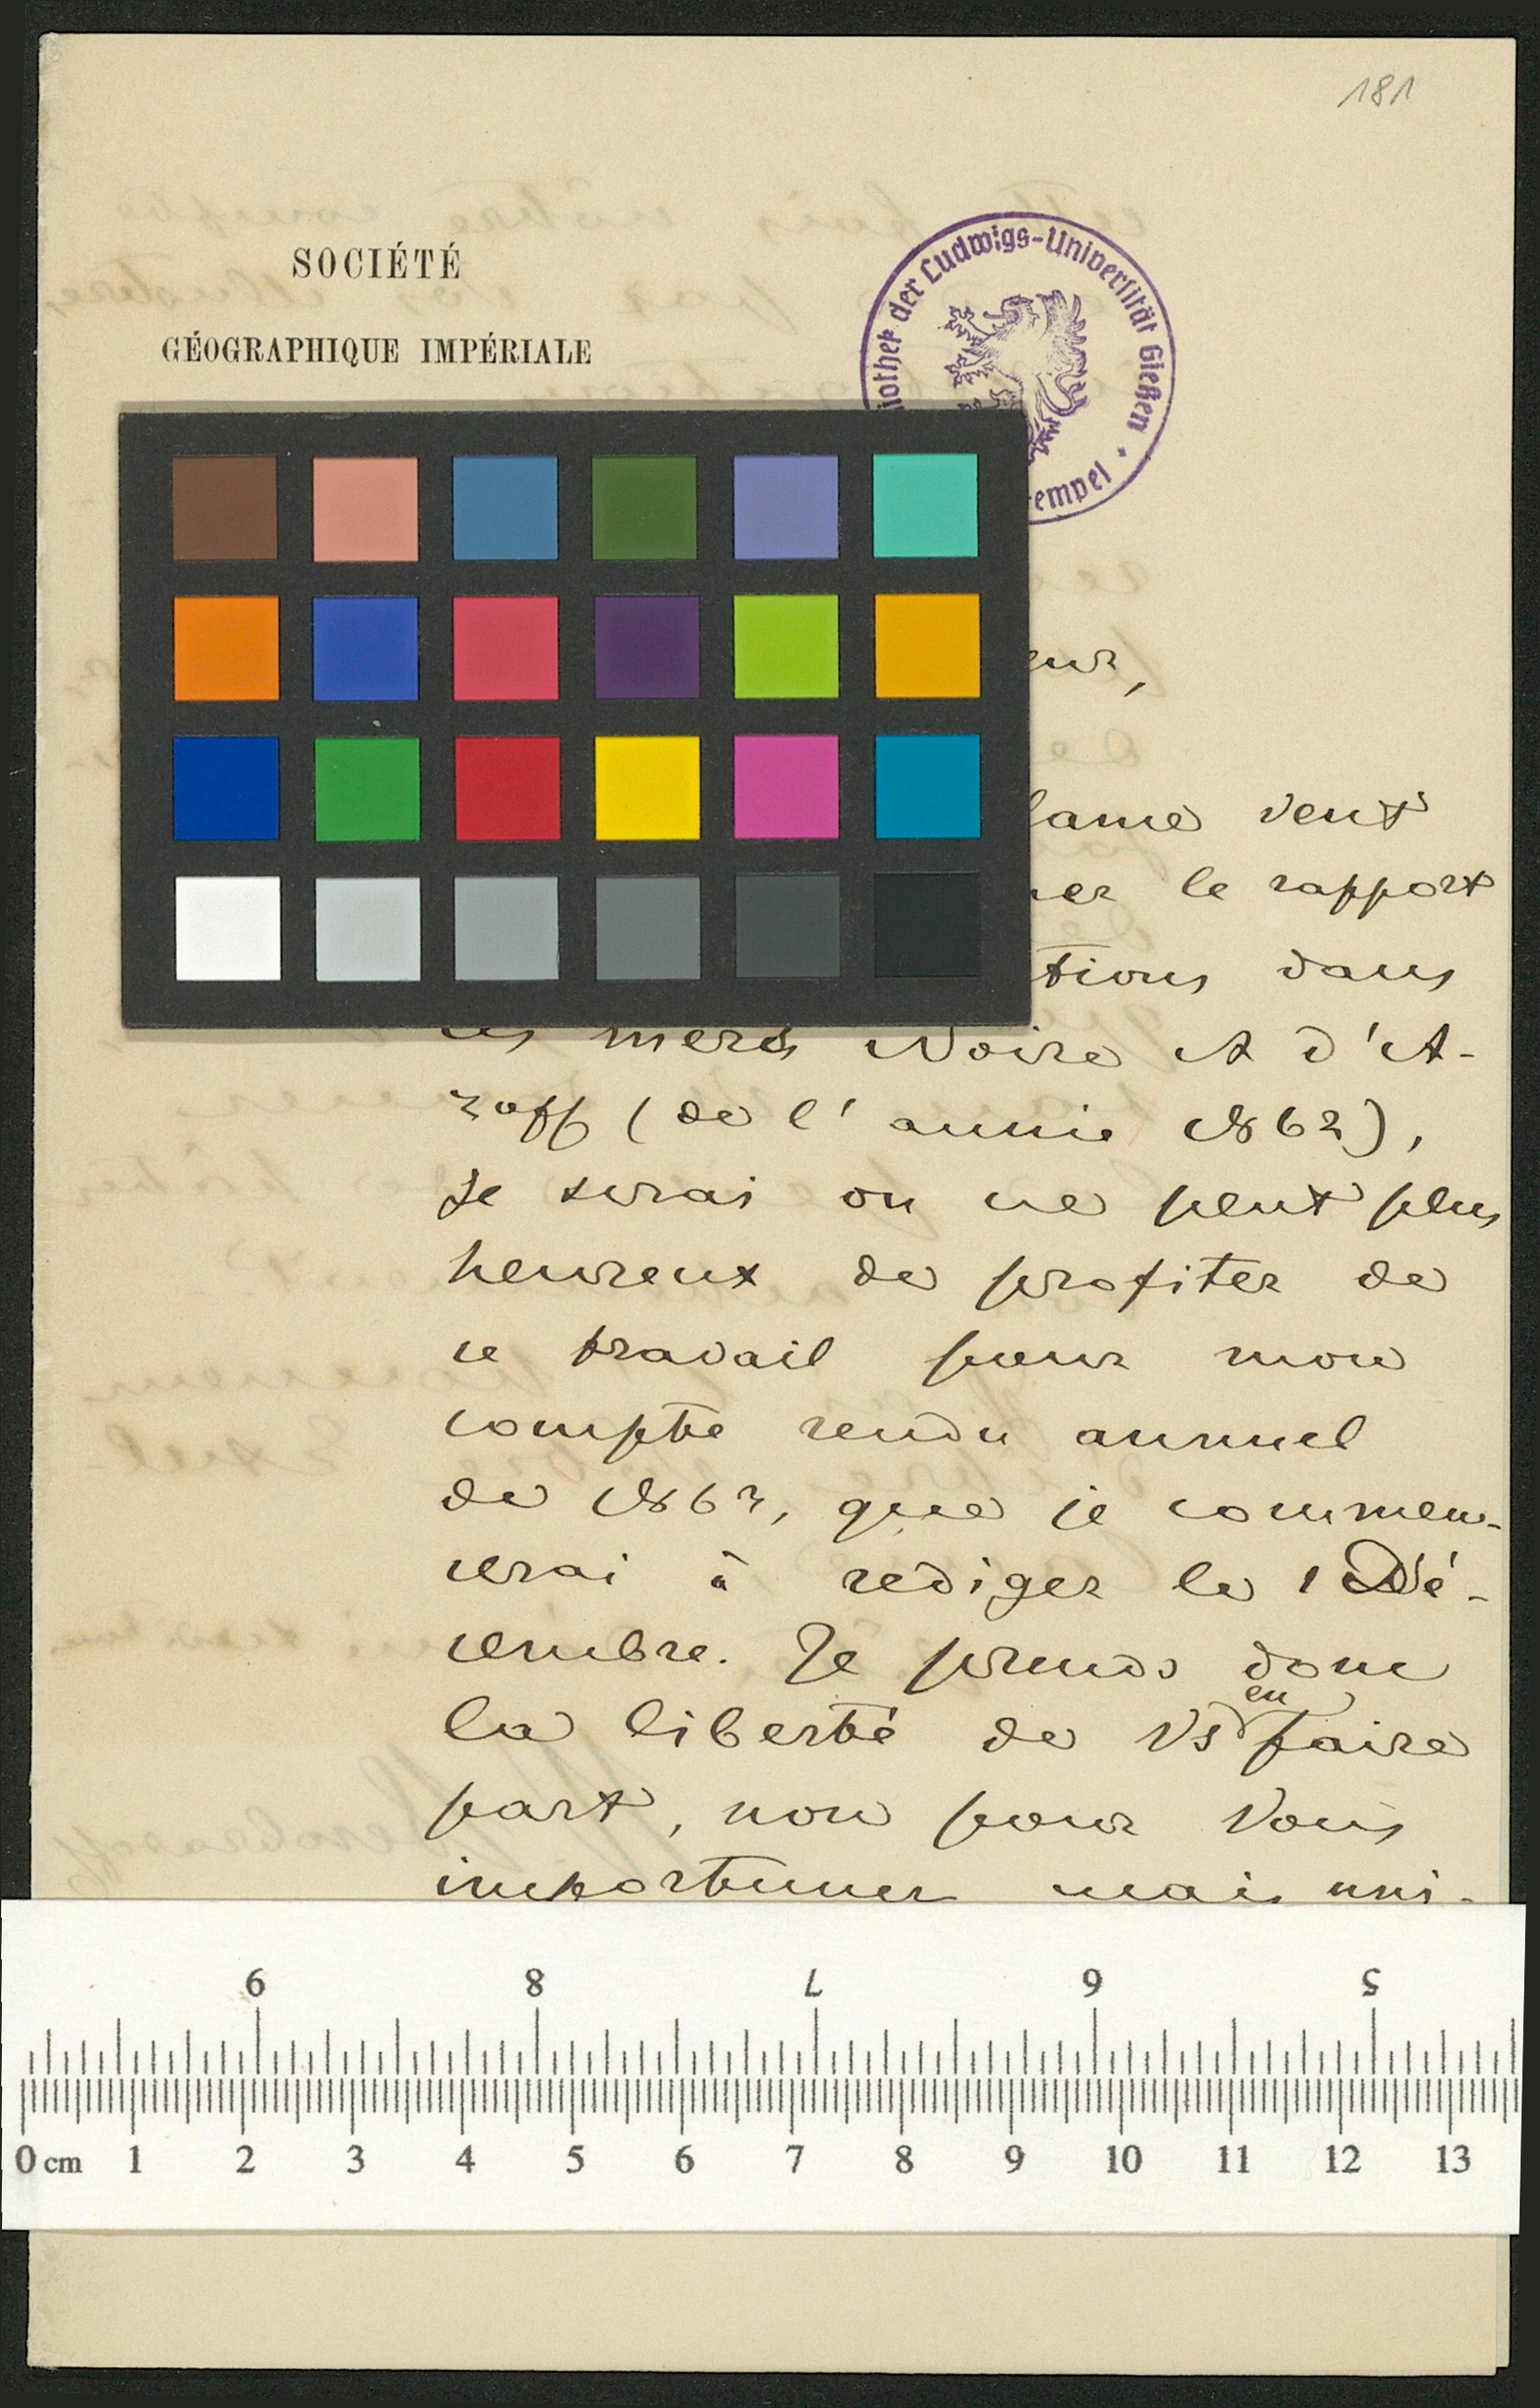 181
SOCIÉTÉ
GÉOGRAPHIQUE IMPÉRIALE
der Ludwigs-Universität Gießen
veut
le rapport
dans
mers Noire et d'A-
zoff (de l'année 1862),
Je serai on ne peut plus
heureux de profiter de
ce travail pour mon
compte rendu annuel
de 1862, que je commen-
cerai à rédiger le 1 Dé-
cembre. Je prends donc
la liberté de Vs en faire
part, non pour Vous
importuner mais uni-
9 8 7 6 5
0 cm 1 2 3 4 5 6 7 8 9 10 11 12 13